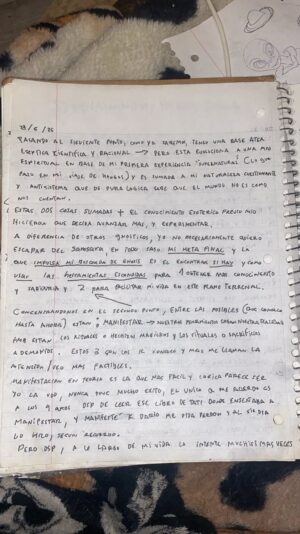 23/6/25
PASANDO AL SIGUIENTE PUNTO, COMO YA SABEMOS, TENGO UNA BASE ATEA
ESCEPTICA CIENTIFICA Y RACIONAL → PERO ESTA EVOLUCIONA A UNA MAS
ESPIRITUAL EN BASE DE MI PRIMERA EXPERIENCIA "SOBRENATURAL" (LO QUE
PASO EN MI VIAJE DE HONGOS) Y ES SUMADA A MI NATURALEZA CUESTIONANTE
Y ANTISISTEMA QUE DE PURA LOGICA SABE QUE EL MUNDO NO ES COMO
NOS CUENTAN.
ESTAS DOS COSAS SUMADAS + EL CONOCIMIENTO ESOTERICO PREVIO MIO
HICIERON QUE DECIDA AVANZAR MAS, Y EXPERIMENTAR.
A DIFERENCIA DE OTROS GNOSTICOS, YO NO NECESARIAMENTE QUIERO
ESCAPAR DEL SAMSARA EN TODO CASO MI META FINAL Y LA
QUE IMPULSA MI BUSQUEDA DE GNOSIS ES EL ENCONTRAR SI HAY Y COMO
USAR LAS HERRAMIENTAS ESCONDIDAS PARA 1 OBTENER MAS CONOCIMIENTO
Y SABIDURIA Y 2 PARA FACILITAR MI VIDA EN ESTE PLANO TERRENAL.
CONCENTRANDONOS EN EL SEGUNDO PUNTO, ENTRE LAS POSIBLES (QUE CONOZCA
HASTA AHORA) ESTAN: MANIFESTAR → NUESTRA
ESTAN LOS ALTARES O HECHIZOS MARINOS Y LOS RITUALES O SACRIFICIOS
A DEMONIOS. ESTOS 3 SON LOS Q CONOZCO Y MAS ME LLAMAN LA
ATENCION/VEO MAS FACTIBLES.
MANIFESTACION EN TEORIA ES LA MAS FACIL Y LOGICA PARECE SER
YO LA USO, NUNCA TUVE MUCHO EXITO, EL UNICO Q ME ACUERDO ES
A LOS 9 AÑOS DSP DE LEER ESE LIBRO DE TATI DONDE ENSEÑABA A
MANIFESTAR, Y MANIFESTE Q ME PIDA PERDON Y AL SIG DIA
LO HIZO, SEGUN RECUERDO.
PERO DSP, A LO LARGO DE MI VIDA LA INTENTE MUCHISIMAS VECES